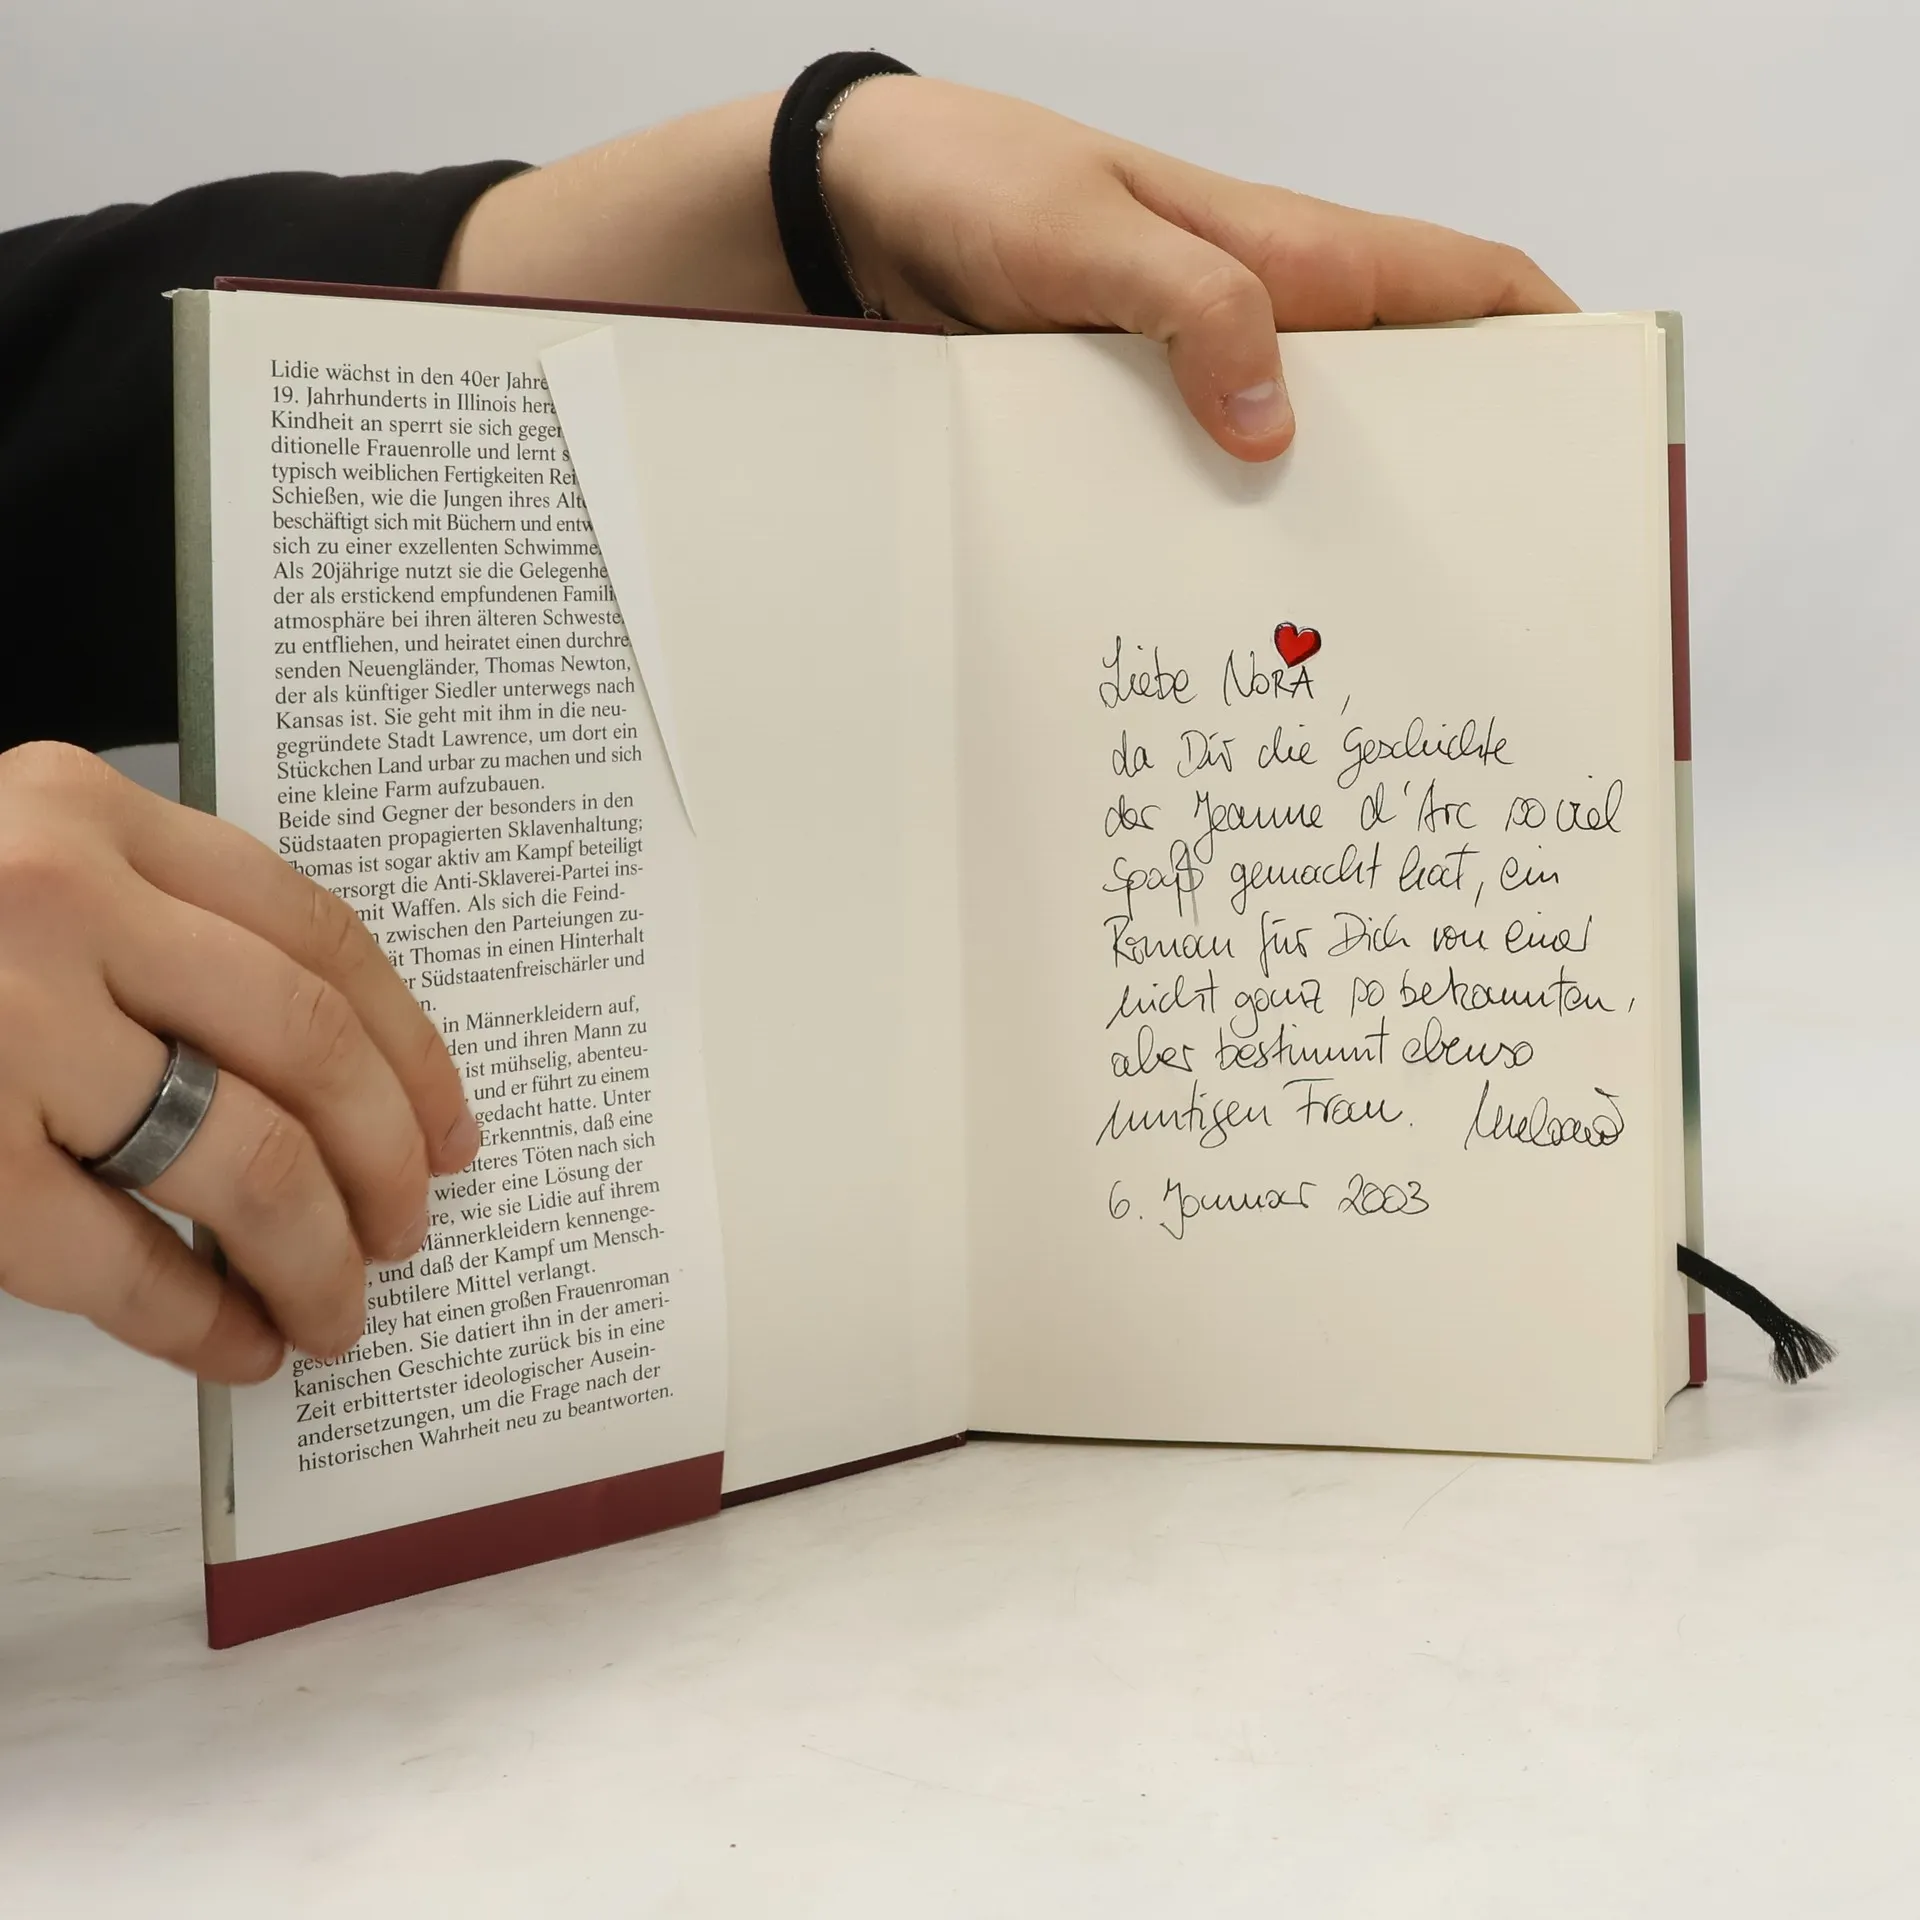 Lidie wächst in den 40er Jahre
19. Jahrhunderts in Illinois hera
Kindheit an sperrt sie sich gegen
ditionelle Frauenrolle und lernt s
typisch weiblichen Fertigkeiten Rei
Schießen, wie die Jungen ihres Alte
beschäftigt sich mit Büchern und entw
sich zu einer exzellenten Schwimme
Als 20jährige nutzt sie die Gelegenhe
der als erstickend empfundenen Famili
atmosphäre bei ihren älteren Schweste
zu entfliehen, und heiratet einen durchre
senden Neuengländer, Thomas Newton,
der als künftiger Siedler unterwegs nach
Kansas ist. Sie geht mit ihm in die neu-
gegründete Stadt Lawrence, um dort ein
Stückchen Land urbar zu machen und sich
eine kleine Farm aufzubauen.
Beide sind Gegner der besonders in den
Südstaaten propagierten Sklavenhaltung;
Thomas ist sogar aktiv am Kampf beteiligt
versorgt die Anti-Sklaverei-Partei ins-
mit Waffen. Als sich die Feind-
zwischen den Parteiungen zu-
ät Thomas in einen Hinterhalt
er Südstaatenfreischärler und
n.
in Männerkleidern auf,
den und ihren Mann zu
ist mühselig, abenteu-
, und er führt zu einem
gedacht hatte. Unter
Erkenntnis, daß eine
eiteres Töten nach sich
wieder eine Lösung der
ire, wie sie Lidie auf ihrem
Männerkleidern kennenge-
, und daß der Kampf um Mensch-
subtilere Mittel verlangt.
iley hat einen großen Frauenroman
geschrieben. Sie datiert ihn in der ameri-
kanischen Geschichte zurück bis in eine
Zeit erbittertster ideologischer Ausein-
andersetzungen, um die Frage nach der
historischen Wahrheit neu zu beantworten.
Liebe NORA,
da Dir die Geschichte
der Jeanne d'Arc so viel
Spaß gemacht hat, ein
Roman für Dich von einer
nicht ganz so bekannten,
aber bestimmt ebenso
mutigen Frau.
6. Januar 2003